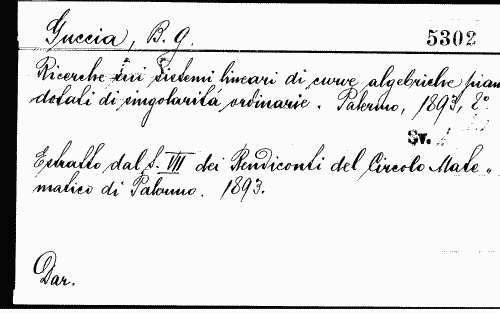 Guccia, B. G. 5302
Ricerche sui sistemi lineari di curve algebriche pian
dotati di singolaritá ordinarie. Palermo, 1893, 8°
Sv.
Estratto dal t. VII dei Rendiconti del Circolo Mate„
matico di Palermo. 1893.
Dar.